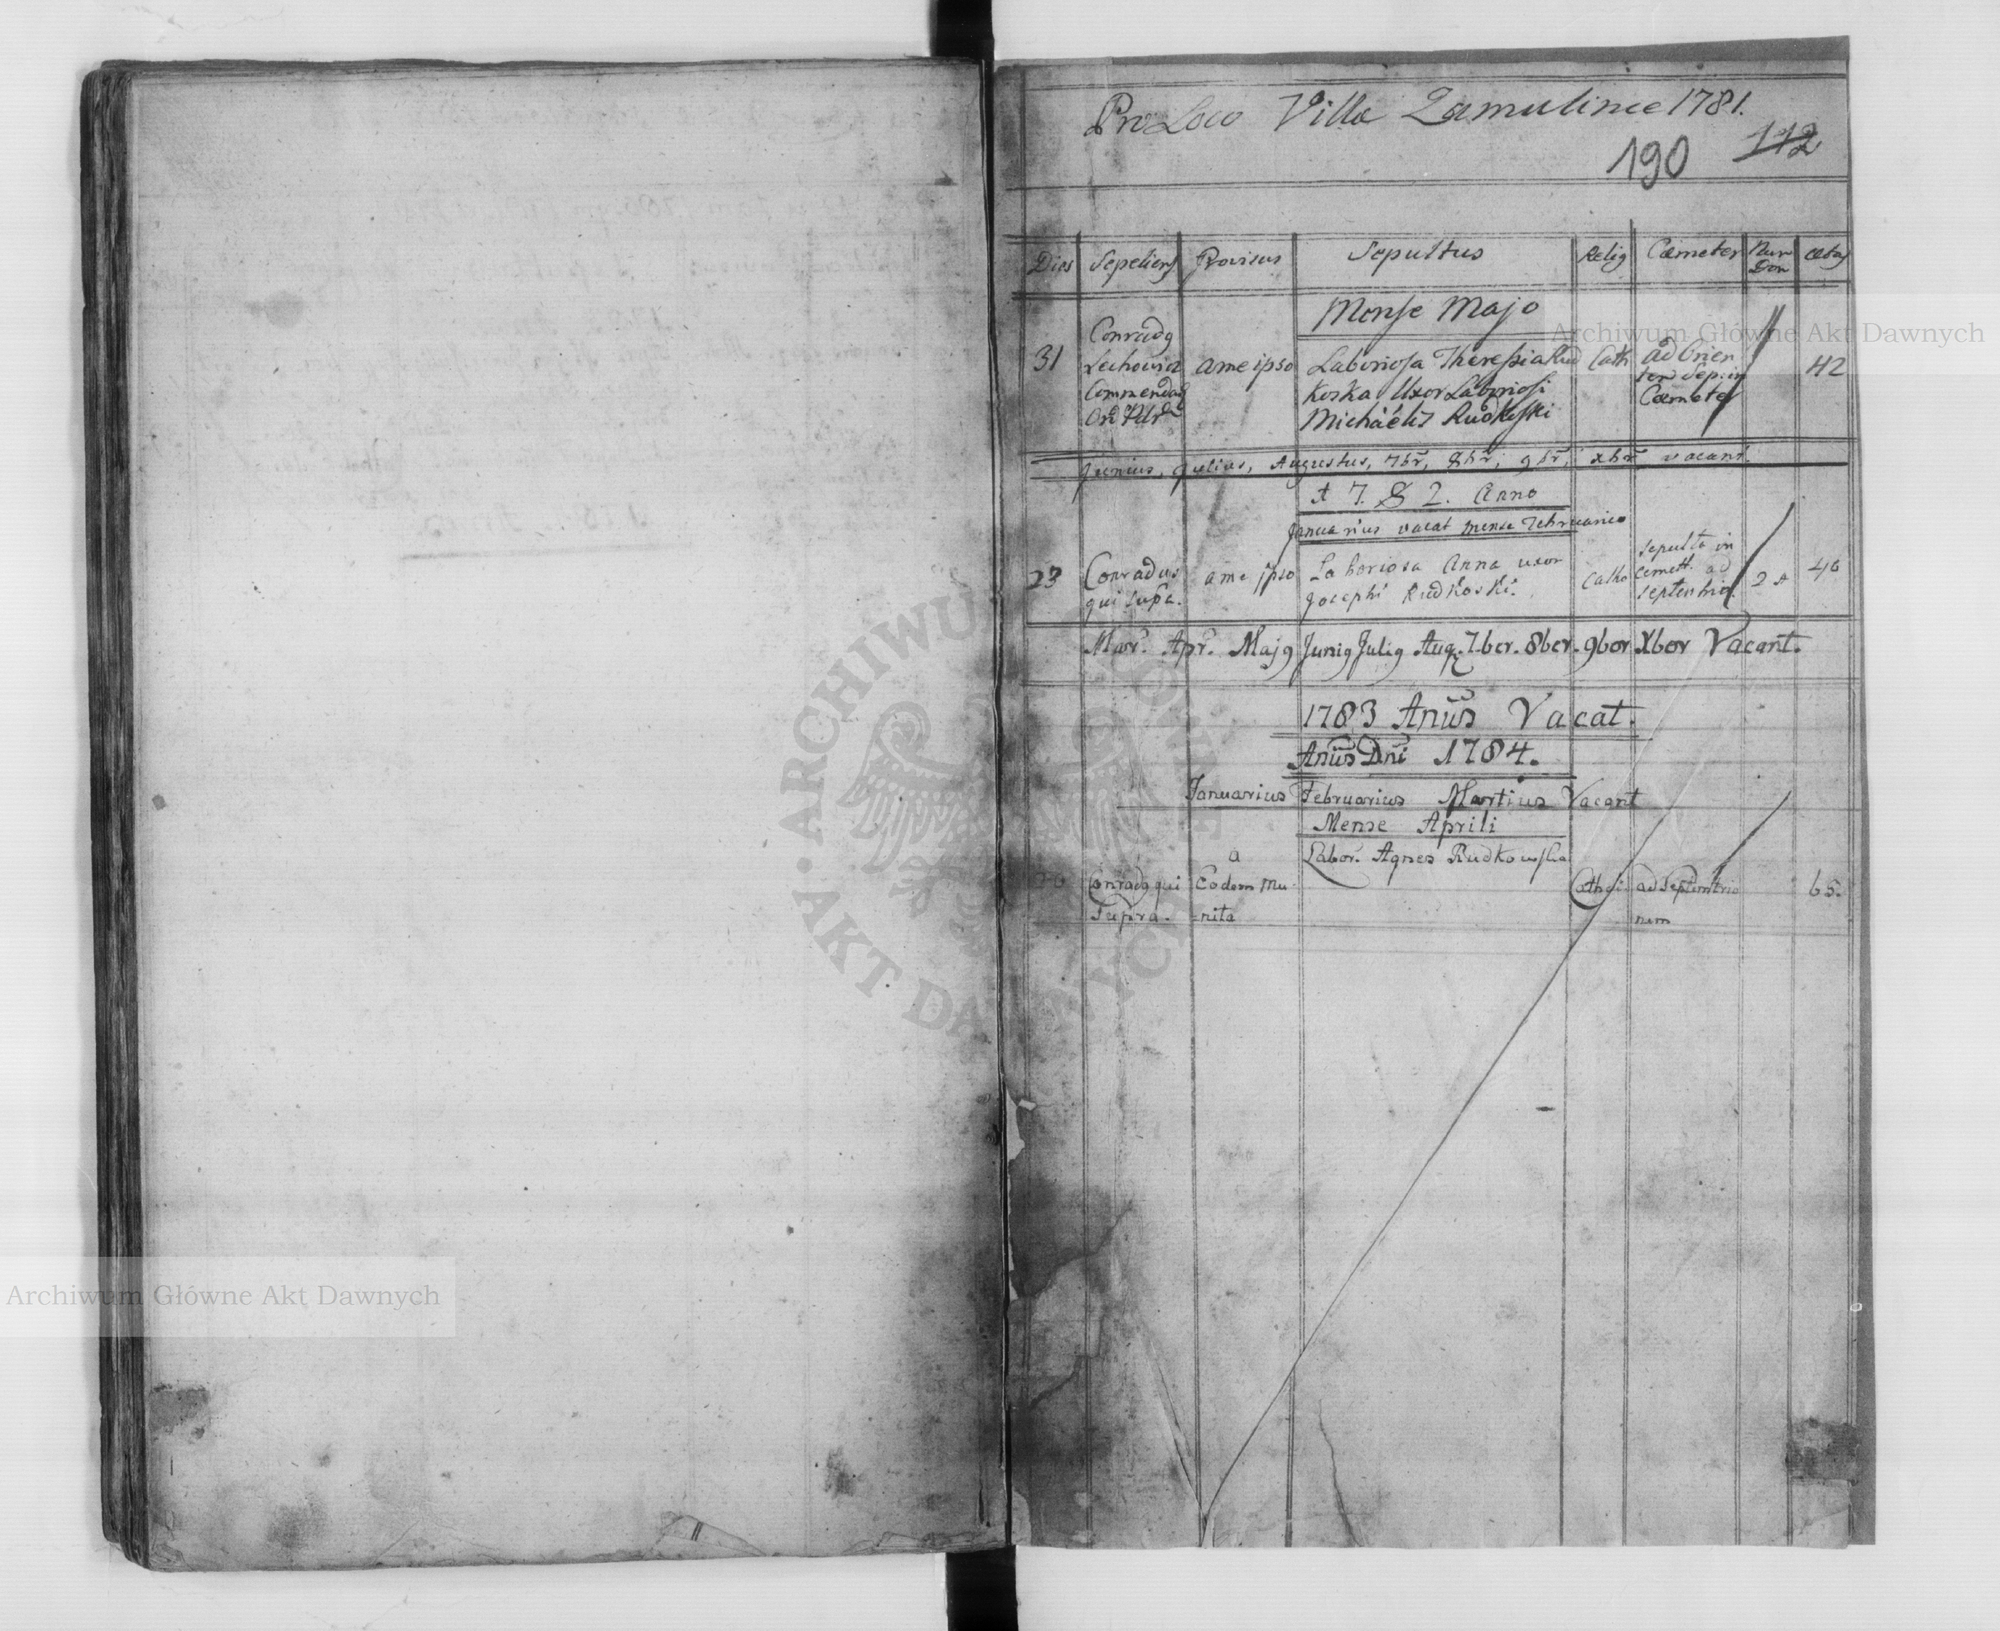 Pro Loco Villa Zamulince 1781.
190 112
Dies Sepeliens Provisus Sepultus Relig Cæmeter Num Dom ætas
Mense Majo
31 Conradq Lechowicz Commenda Ord
a me ipso
Laboriosa Theressia Rud
koska Uxor Laboriosi
Michäelis Rudkoski
Cath
ad Orien
ter Sep: in
Cæmeter
42
Junius, Julius, Augustus, 7br, 8br, 9br, xbr vacant.
A 7. 8 2. Anno
Januarius vacat mense Februario
23
Conradus
qui supa.
a me ipso
Laboriosa Anna uxor
Josephi Rudkoski.
Catho
sepulta in
cemett. ad
septentrio.
2 A
40
Mar. Apr. Majq Juniq Juliq Aug. 7.ber. 8ber. 9ber Xber Vacant.
1783 Anūs Vacat.
Anūs Dni 1784.
Januarius Februarius Martius Vacant
Mense Aprili
Labor. Agnes Rudkowska
Conradq qui
Supra.
a
Eodem Mu-
-nita
Cathol:
ad Septemtrio
nem
65.
Archiwum Główne Akt Dawnych
Archiwum Główne Akt Dawnych